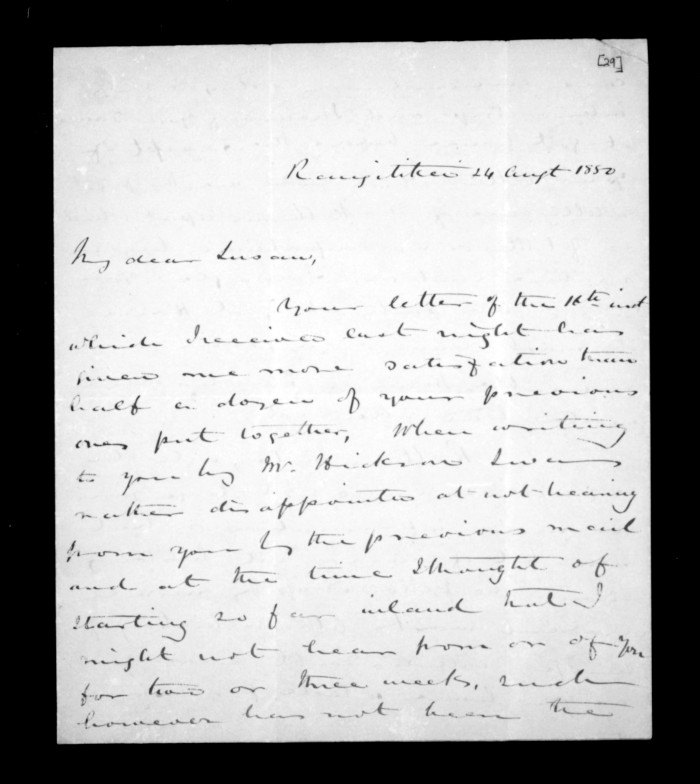 [29]
Rangitikei 24 Augt 1850
My dear Susan,
Your letter of the 16th inst
which I received last night has
given me more satisfaction than
half a dozen of your previous
ones put together, When writing
to you by Mr. Hickson I was
rather disappointed at not hearing
from you by the previous mail
and at the time I thought of
starting so far inland that I
might not hear from or of you
for two or three weeks, such
however has not been the